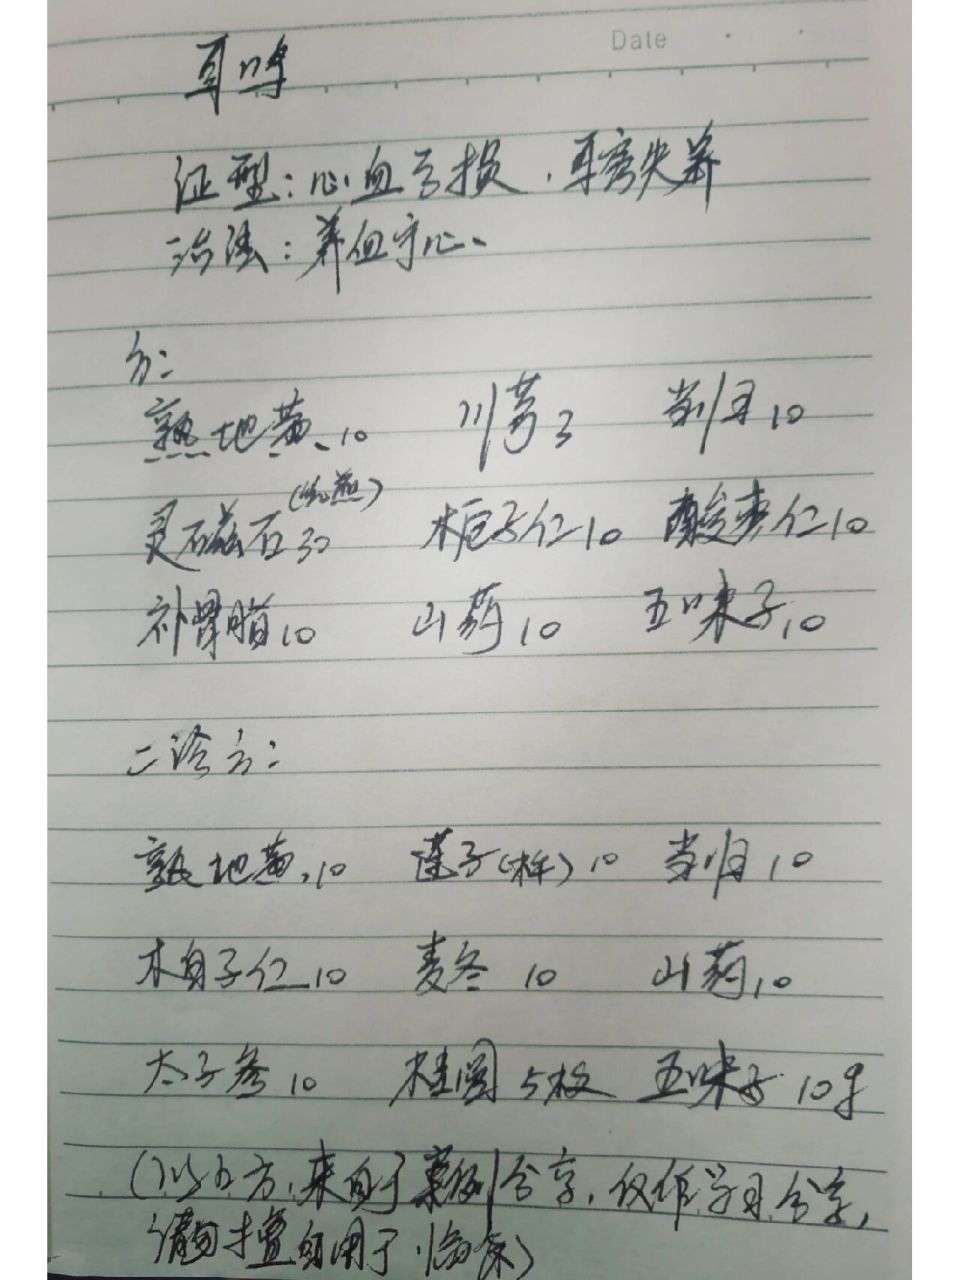 Date
耳鸣
证型：心血亏损，耳窍失养
治法：养血宁心。
方：
熟地黄 10 川芎 3 当归 10
灵磁石30（先煎） 柏子仁10 酸枣仁10
补骨脂10 山药10 五味子10
二诊方：
熟地黄10 莲子（拌）10 当归10
柏子仁10 麦冬 10 山药10
太子参10 桂圆 5枚 五味子 10g
（以上方，来自于案例分享，仅作学习分享，
请勿擅自用于临床）